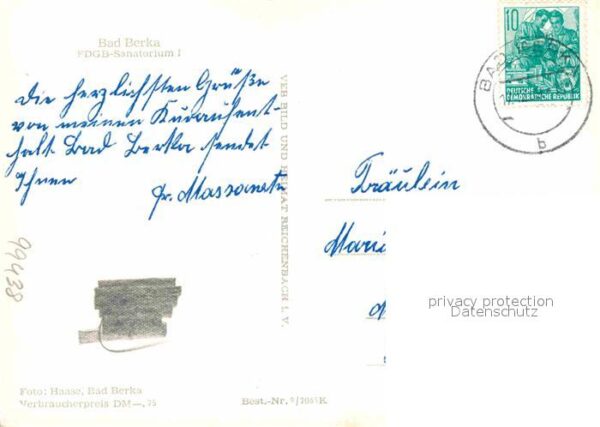 Bad Berka
FDGB-Sanatorium I
die herzlichsten Grüße
von meinen Kuraufent-
halt Bad Berka sendet
Ihnen
fr. Massanetz
Fräulein
Maria
99438
VEB BILD UND HEIMAT REICHENBACH I. V.
10
DEUTSCHE
DEMOKRATISCHE REPUBLIK
BAD BERKA
b
privacy protection
Datenschutz
Foto: Haase, Bad Berka
Verbraucherpreis DM—,25
Best.-Nr. 9/2065K